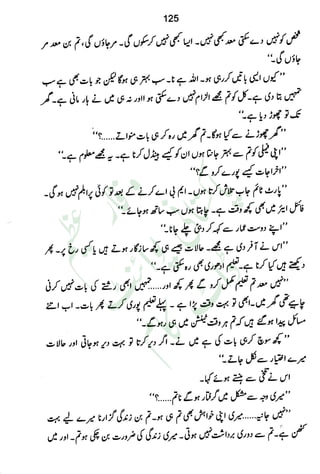 125
شخص کو نہیں دے سکتی معد کبھی نہیں۔ ایسا کبھی نہیں کر سکوں گی۔ مر جاؤں گی، تم بن معد مر
جاؤں گی۔"
"کیوں ایسی باتیں کر رہی ہو۔ اللہ ہے نا۔ سب بہتر ہی ہوگا لیکن جو بات بھی ہے سب
تمہیں بتا دی ہے۔ کل کو تم مجھے الزام نہیں دے سکتی ہو اور نہ ہی میں نے ہار مانی ہے۔ گھر
تک تو چھوڑ دیا ہے۔"
"گھر چھوڑنے سے کیا ہوگا۔ تم گھر میں رہ کر ہی بات منواتے......؟"
"اپنی فیملی کو تم سے بہتر جانتا ہوں ان کو کیسے ہینڈل کرنا ہے۔ یہ مجھے معلوم ہے۔"
"اخراجات کیسے پورے کرو گے؟"
"پارٹ ٹائم جاب تلاش کرتا ہوں۔ ایم بی اے کرنے کے بعد تو کوئی پرابلم نہیں ہوگی۔
فائنل ایئر میں بھی کچھ وقت ہے۔ چاہتا ہوں سب ساتھ ہو جائے۔"
"اپنے دوست عمار سے کہہ کر دبئی چلے جانا۔"
"اس نے آفر دی ہے مجھے۔ حالات جیسے ہی کچھ سازگار ہوتے ہیں یا کسی رخ پر۔ پھر
دیکھتے ہیں کیا کرنا ہے۔ تعلیم ادھوری بھی رہ سکتی ہے۔"
"نہیں معد تم تعلیم مکمل کرو گے پھر کچھ اور......تمہیں ابھی رشتے کی بات نہیں کرنی
چاہیے تھی گھر میں۔ ابھی تو بہت وقت پڑا ہے۔ پہلے تعلیم پوری کرتے پھر بات۔ اب اتنے
مسائل پیدا ہو گئے ہیں کہ تم ہر وقت ٹینشن میں ہی رہو گے۔"
"کچھ سوچ کر ہی بات کی ہے میں نے۔ اگر دیر کرتا تو بہت دیر ہو جاتی اور حالات
میرے اختیار سے نکل جاتے۔"
اس نے تلخی سے ہنستے ہوئے کہا۔
"میری وجہ سے مشکل میں گرفتار ہو گئے نا تم......؟"
"نہیں جانیہ......میری اپنی خواہش بھی تم ہی ہو۔ تم بن زندگی گزارنا میرے لیے بہت
کٹھن ہے۔ تم سے دوری برداشت نہیں ہوتی۔ میری زندگی کی ضرورت بن چکی ہو تم۔ اور میں